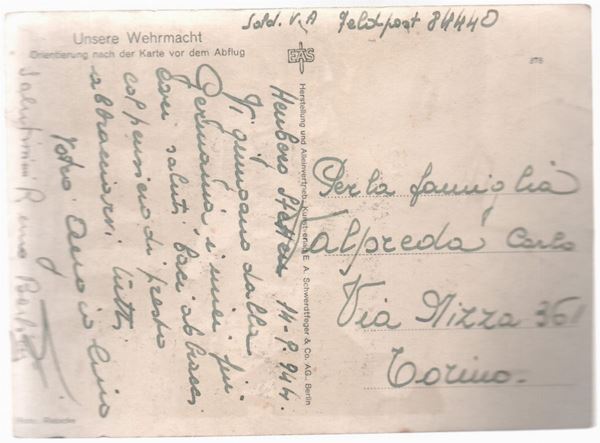 Sold. V. A Feldpost 84440
Unsere Wehrmacht
Orientierung nach der Karte vor dem Abflug
EAS
876
Herstellung und Alleinvertrieb: Kunstverlag E. A. Schwerdtfeger & Co. AG., Berlin
Heuberg Stetten 14-9. 944.
Vi giungano dalla
Germania i miei più
cari saluti, baci abbracci
col pensiero di presto
abbracciarvi tutti
Vostro
Per la famiglia
Valpreda Carlo
Via Nizza 361
Torino.